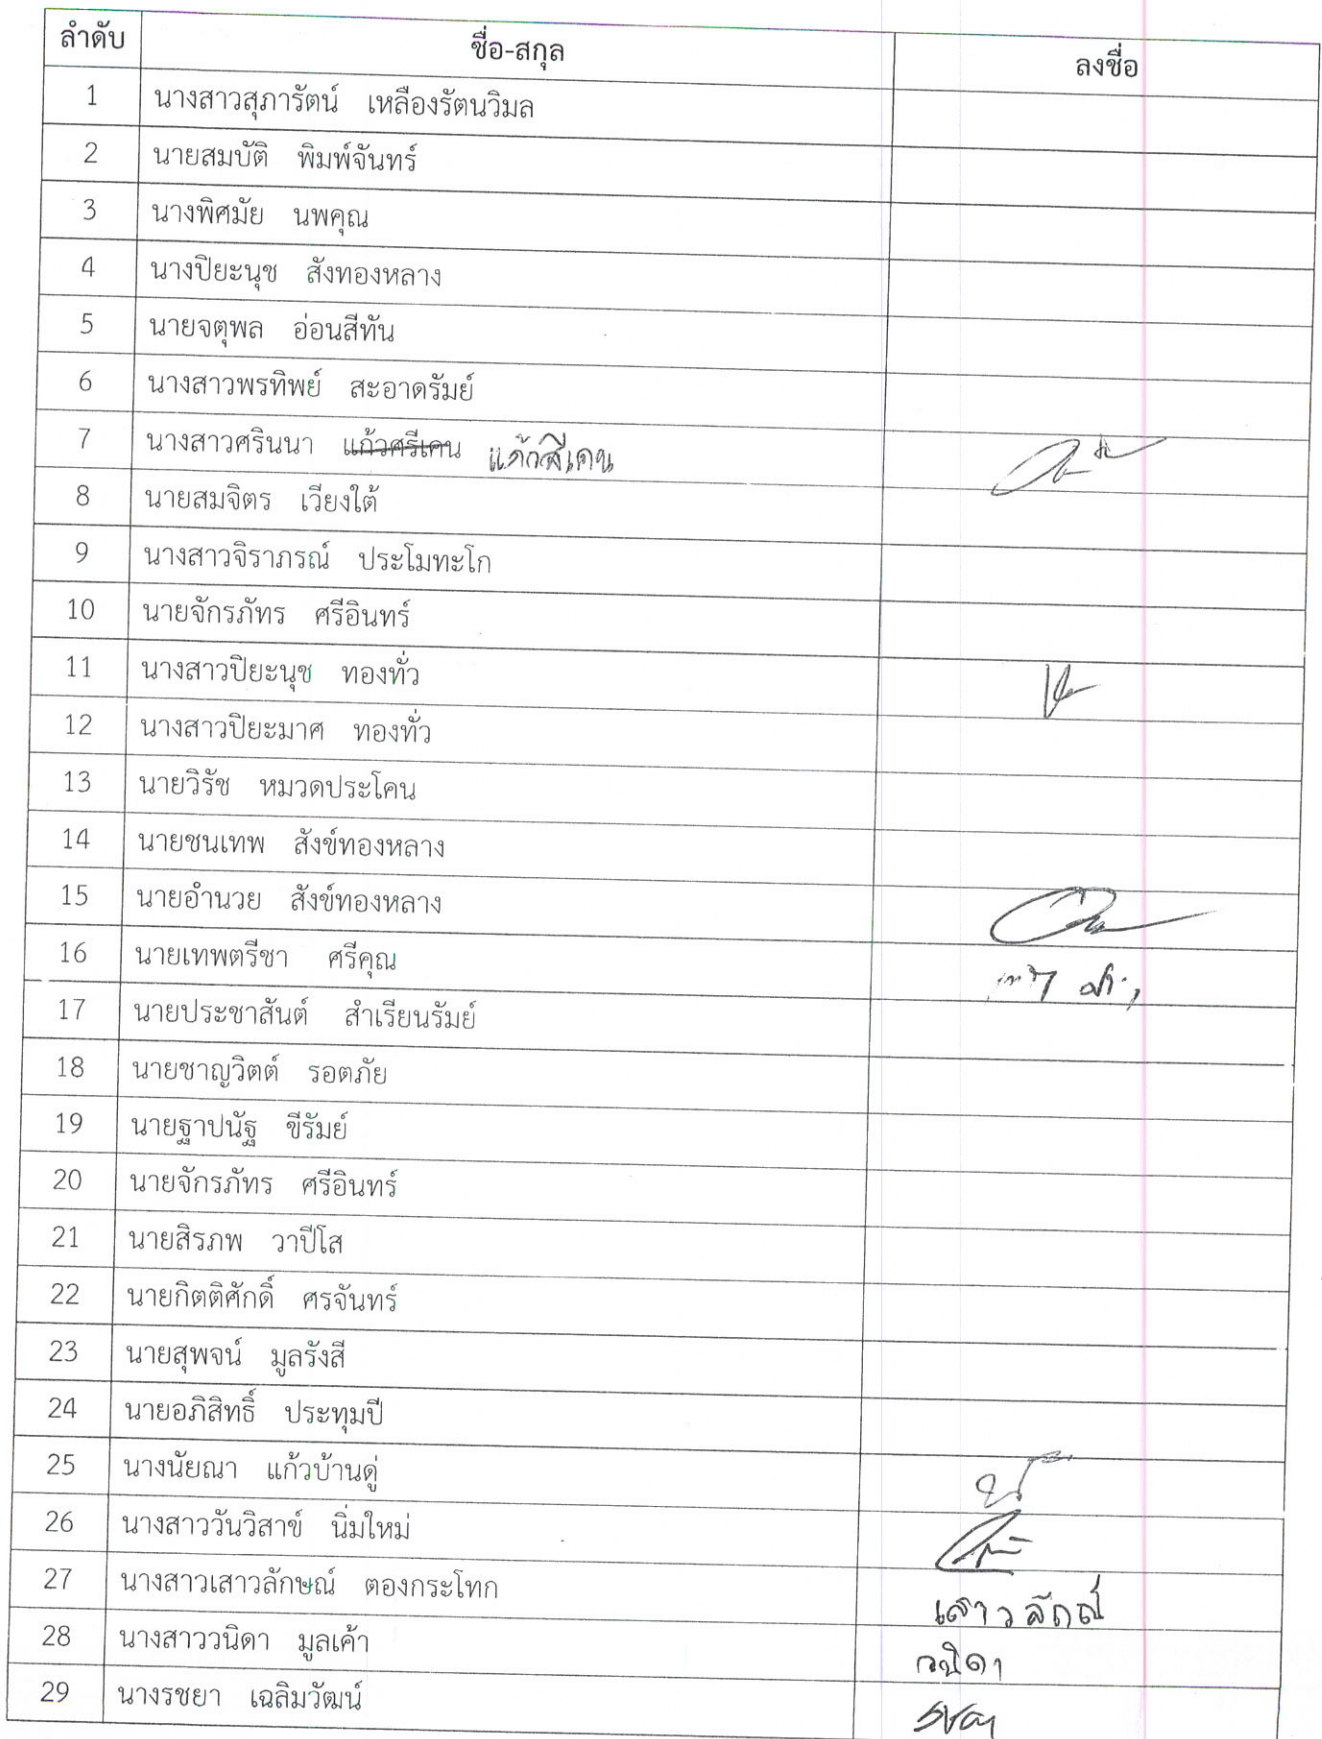 ลำดับ ชื่อ-สกุล ลงชื่อ
1 นางสาวสุภารัตน์ เหลืองรัตนวิมล
2 นายสมบัติ พิมพ์จันทร์
3 นางพิศมัย นพคุณ
4 นางปิยะนุช สังทองหลาง
5 นายจตุพล อ่อนสีทัน
6 นางสาวพรทิพย์ สะอาดรัมย์
7 นางสาวศรินนา แก้วศรีเคน แก้วสีเคน
8 นายสมจิตร เวียงใต้
9 นางสาวจิราภรณ์ ประโมทะโก
10 นายจักรภัทร ศรีอินทร์
11 นางสาวปิยะนุช ทองทั่ว
12 นางสาวปิยะมาศ ทองทั่ว
13 นายวิรัช หมวดประโคน
14 นายชนเทพ สังข์ทองหลาง
15 นายอำนวย สังข์ทองหลาง
16 นายเทพตรีชา ศรีคุณ
17 นายประชาสันต์ สำเรียนรัมย์
18 นายชาญวิตต์ รอตภัย
19 นายฐาปนัฐ ขีรัมย์
20 นายจักรภัทร ศรีอินทร์
21 นายสิรภพ วาปีโส
22 นายกิตติศักดิ์ ศรจันทร์
23 นายสุพจน์ มูลรังสี
24 นายอภิสิทธิ์ ประทุมปี
25 นางนัยณา แก้วบ้านดู่
26 นางสาววันวิสาข์ นิ่มใหม่
27 นางสาวเสาวลักษณ์ ตองกระโทก เสาวลักณ์
28 นางสาววนิดา มูลเค้า วนิดา
29 นางรชยา เฉลิมวัฒน์ รชยา